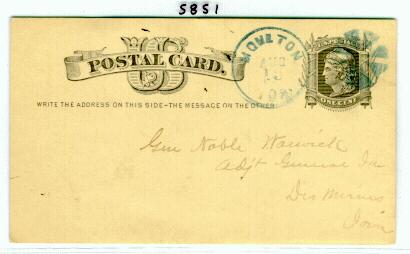 5851
US
POSTAL CARD.
WRITE THE ADDRESS ON THIS SIDE-THE MESSAGE ON THE OTHER
MOULTON
AUG
13
IOWA
ONE CENT
Gen Noble Warwick
Adjt General Ia
Des Moines
Iowa